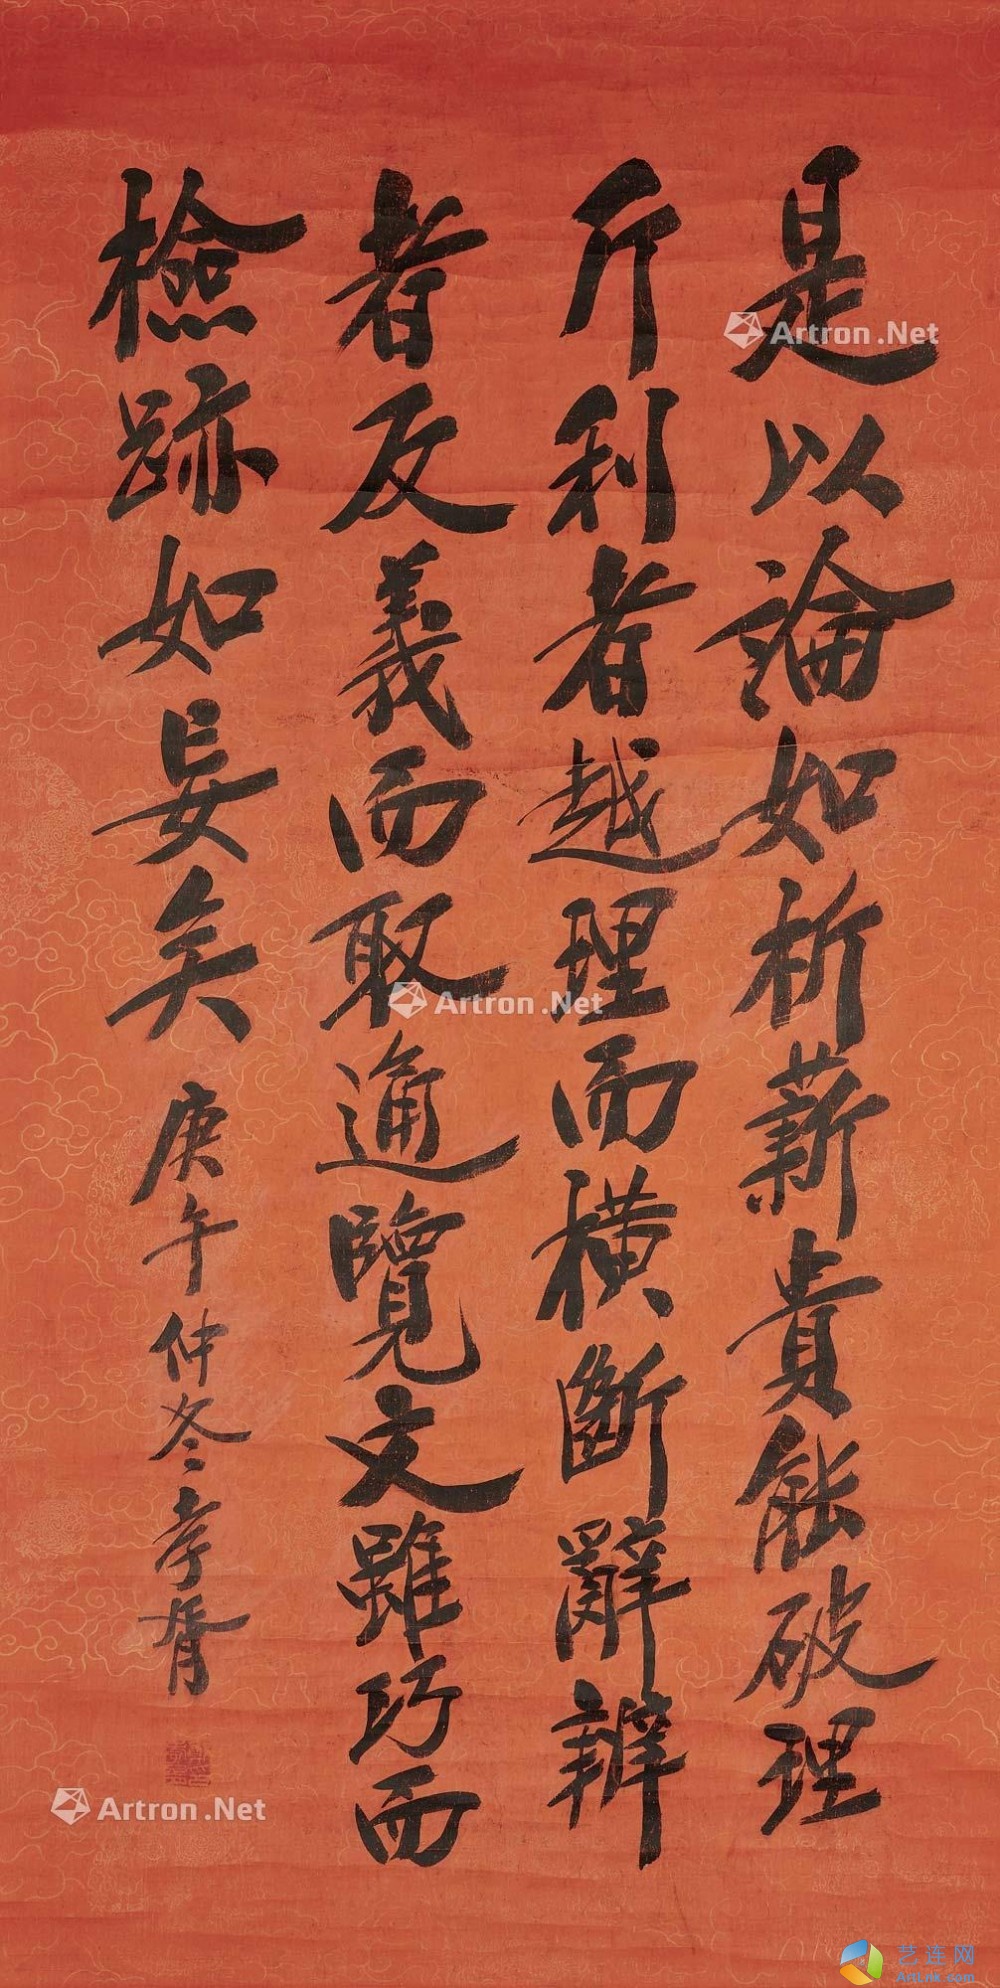 是以論如析薪貴能破理
斤利者越理而橫斷辭辨
者反義而取通覽文雖巧而
檢跡如妄矣
庚午仲冬孝胥
Artron.Net
Artron.Net
Artron.Net
艺连网
ArtLnk.com